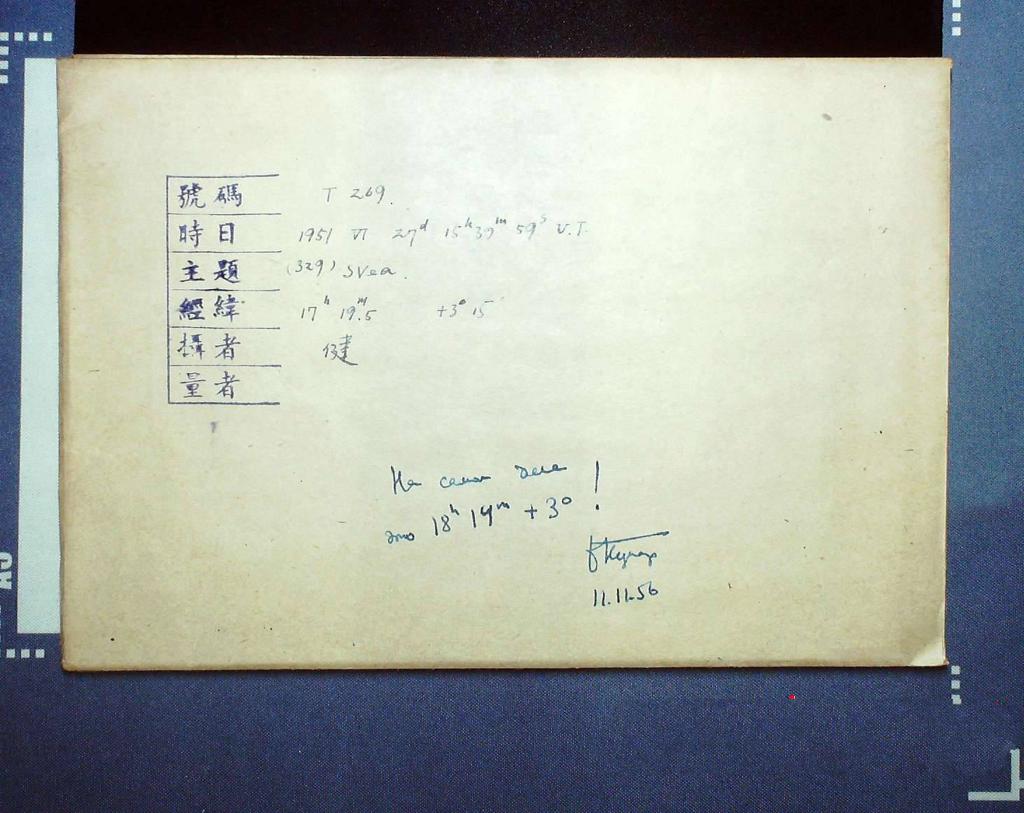 號碼 T 269.
時日 1951 VI 27ᵈ 15ʰ 39ᵐ 59ˢ U.T.
主題 (329) Svea.
經緯 17ʰ 19ᵐ.5 +3° 15
攝者 健
量者
На самом деле !
это 18ʰ 19ᵐ +3° !
11.11.56